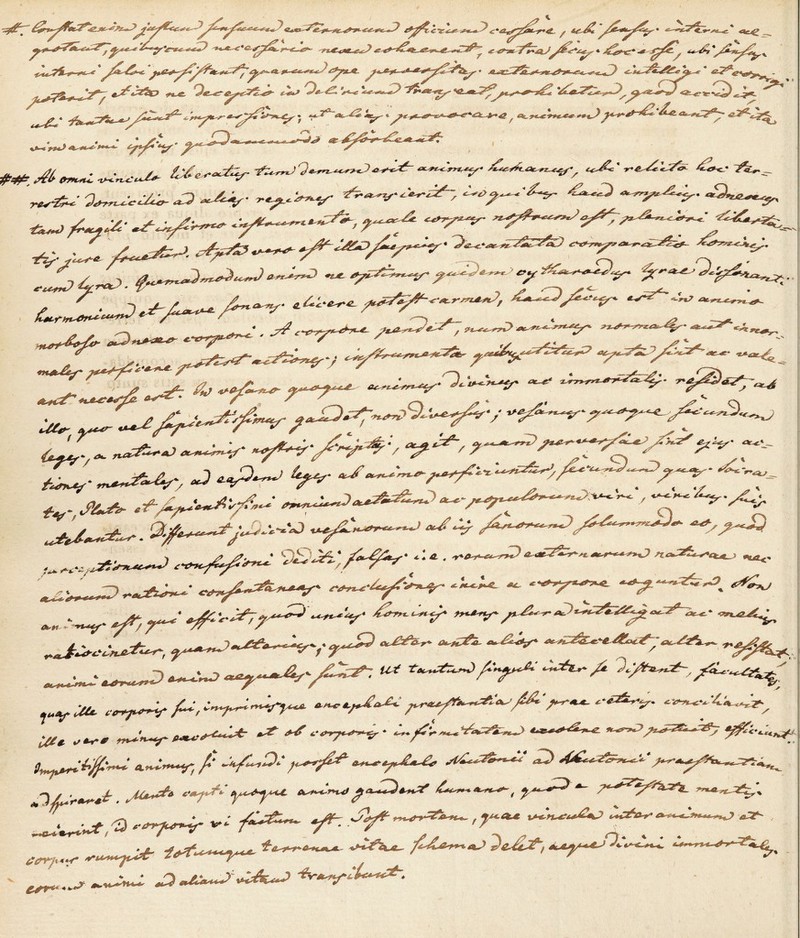 #. Constat enim justum sensuum externorum officium cessare, ubi sensus interni ae-
grotant, quibuscum necessario nexu cohaerent, contra secus hoc esse, ubi sensus
interni salvi persistant, quarum ope perversitas externorum intelligi et corrigi
poterit, et ita ne deceptio in delirium transeat, prohibetur, quod accidit,
ubi tantae sunt impressiones, ut alias provocare, animum prohibeant, et ita
vim animi ipsius quodammodo absorbeant.
##. Ab omni vinculo liberatus tum demum erit animus humanus, ubi relicto hoc ter-
restri domicilio ad alias regiones transierit, in quibus haud amplius adnexus
tam fragili et infirmo instrumento, quale corpus nostrum est, pleniori liberta-
tis jure fruetur. Apta vero est illa saepius decantata comparatio hominis
cum lyra. Quemadmodum enim ne optimus quidem cytharoedus lyrae dissonanti
harmonicum et suave sonans elicere potest carmen, haud secus est in animo
morboso adnexo corpori. A corpore pendet, num animus normales aut innor-
males perficere potest actiones; instrumenta quibus utitur apta sint ac vale-
ant necesse est. In vesano quoque animus divinus ac immortalis residet, ab
illo, quo vel sapientissimus gaudet, non diversus; vesanus quoque secundum
leges, a natura animis nostris scriptas, agit, quam perversae sint ejus ac-
tiones mentales, ad easdem leges ab animo perficiuntur, secundum quas Socra-
tes, Plato et sapientissimi omnium aetatum ac populorum viri, viribus suis
utebantur. Differunt judicia vesanorum ab iis sanorum solummodo eo, quod
perceptionum confusioni dediti, falsas i.e. rerum externarum naturae nec
aliorum rationi consentaneas conclusiones inire a corpore coguntur. Non
animus est, qui efficit, quod unius hominis mens plura intelligat ac melius
ratiocinetur, quam alterius; quod alter ante alios antecellat, alter resistat;
animi eorum enim aequales sunt. Ut tantum singuli inter se distent, facultates,
quas ille corporis sui, imprimisque encephali praestantia sibi prae ceteris conciliavit,
ille vero minus excoluit et ob corporis infirmitatem excolere non potuit, efficiunt.
Imperitissimi animus, si infundi posset encephalo Newtonii ad Newtonii praestantiam
adspiraret. Mente capti quoque animo gaudent humano, quod e potestate mentis
exierint, id corporis vi factum est. Post mortem, quae vincula inter animum et
corpus rumpit totumque terrenae vitae schema delet, aeque divini immortales
eorum animi ad aliam vitam transibunt.